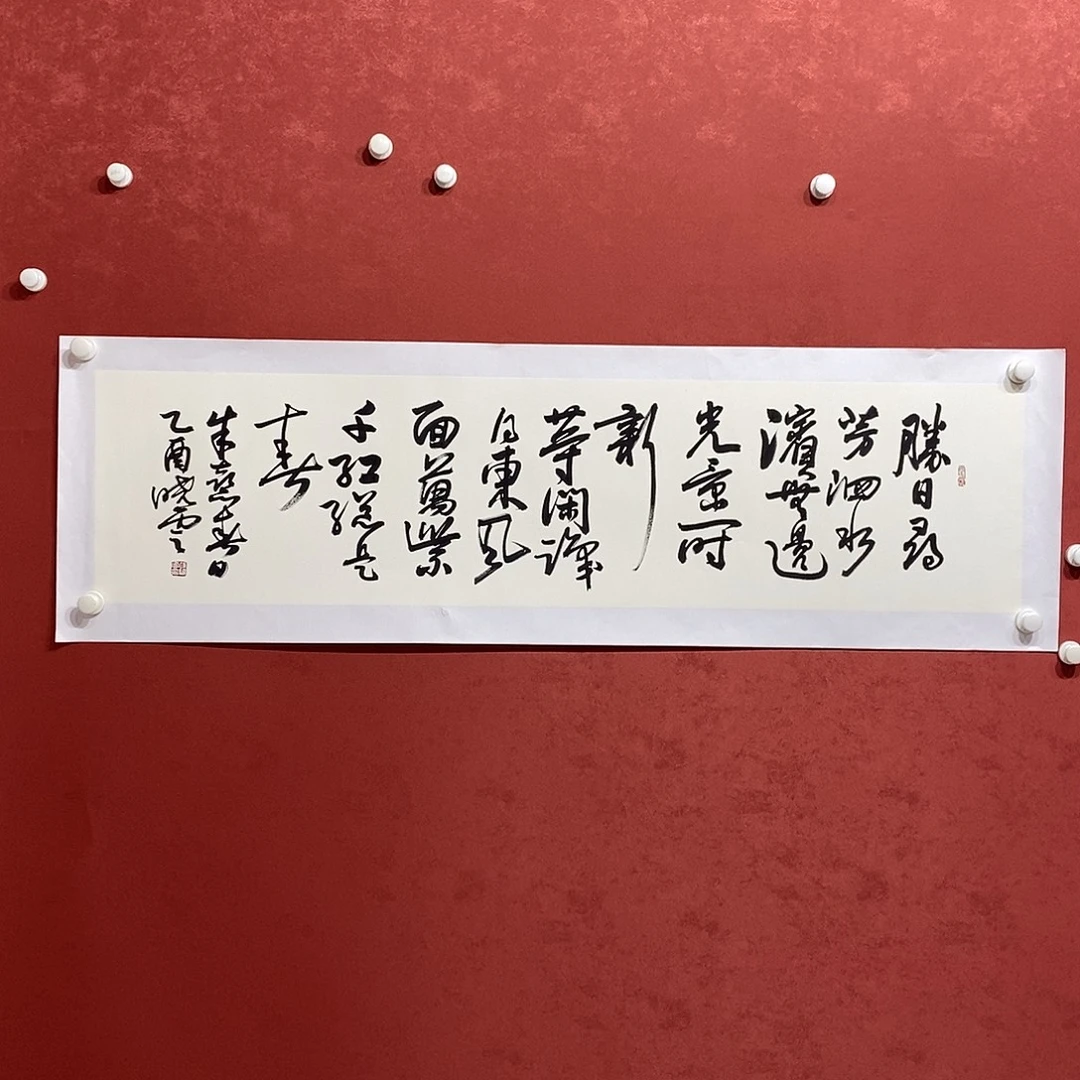 勝日尋
芳泗水
濱無邊
光景一时
新
等閑識
得東風
面萬紫
千紅總是
春
朱熹春日
乙酉曉雲